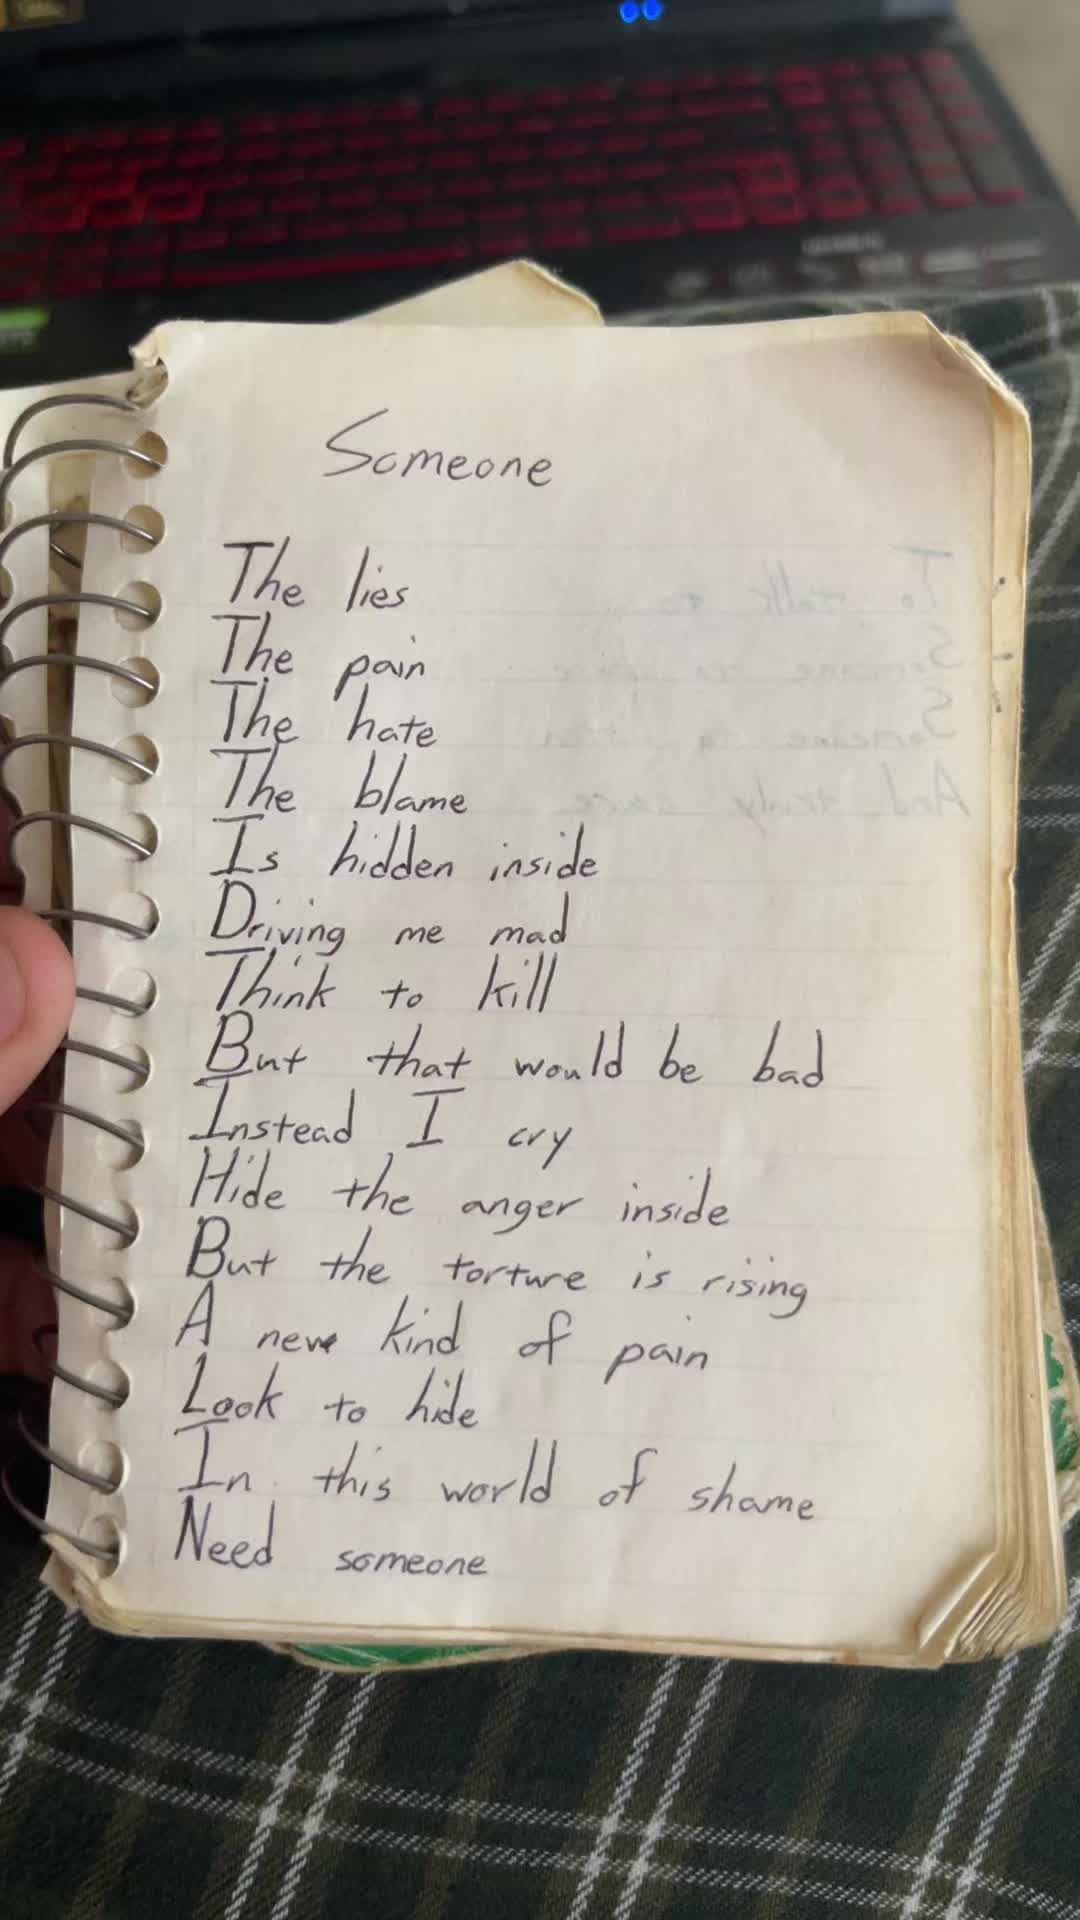 Someone
The lies
The pain
The hate
The blame
Is hidden inside
Driving me mad
Think to kill
But that would be bad
Instead I cry
Hide the anger inside
But the torture is rising
A new kind of pain
Look to hide
In this world of shame
Need someone
To talk to
Someone to
Someone to listen
And truly care